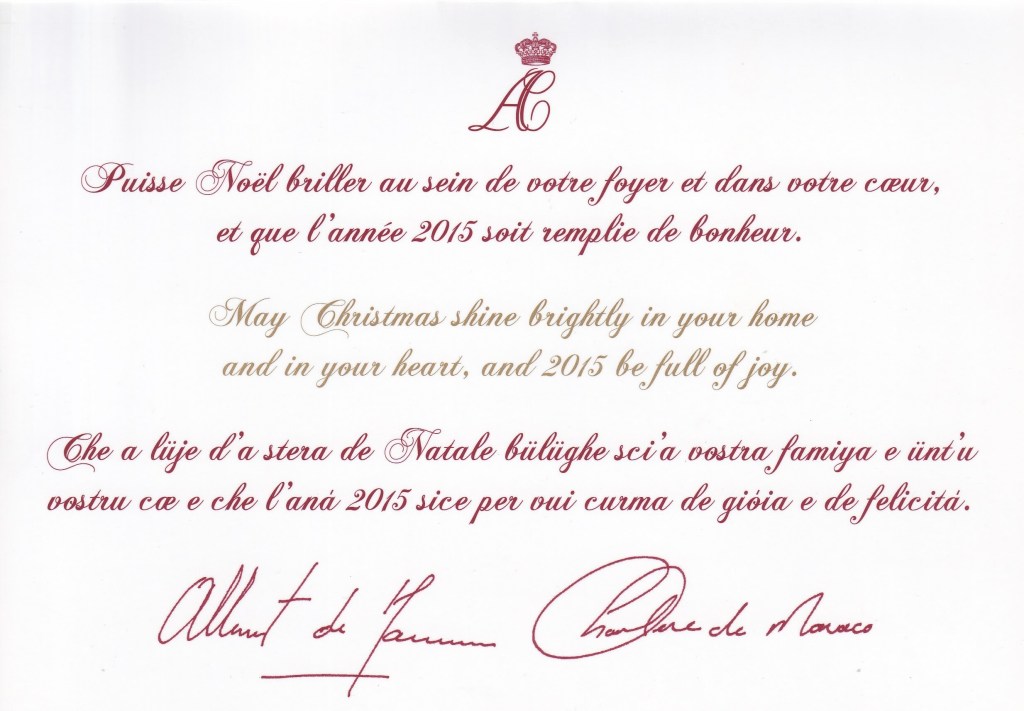 AC
Puisse Noël briller au sein de votre foyer et dans votre cœur,
et que l'année 2015 soit remplie de bonheur.
May Christmas shine brightly in your home
and in your heart, and 2015 be full of joy.
Che a lüje d'a stera de Natale bülüghe sci'a vostra famiya e ünt'u
vostru cœ e che l'aná 2015 sice per vui curma de gióia e de felicitá.
Albert de Monaco Charlene de Monaco